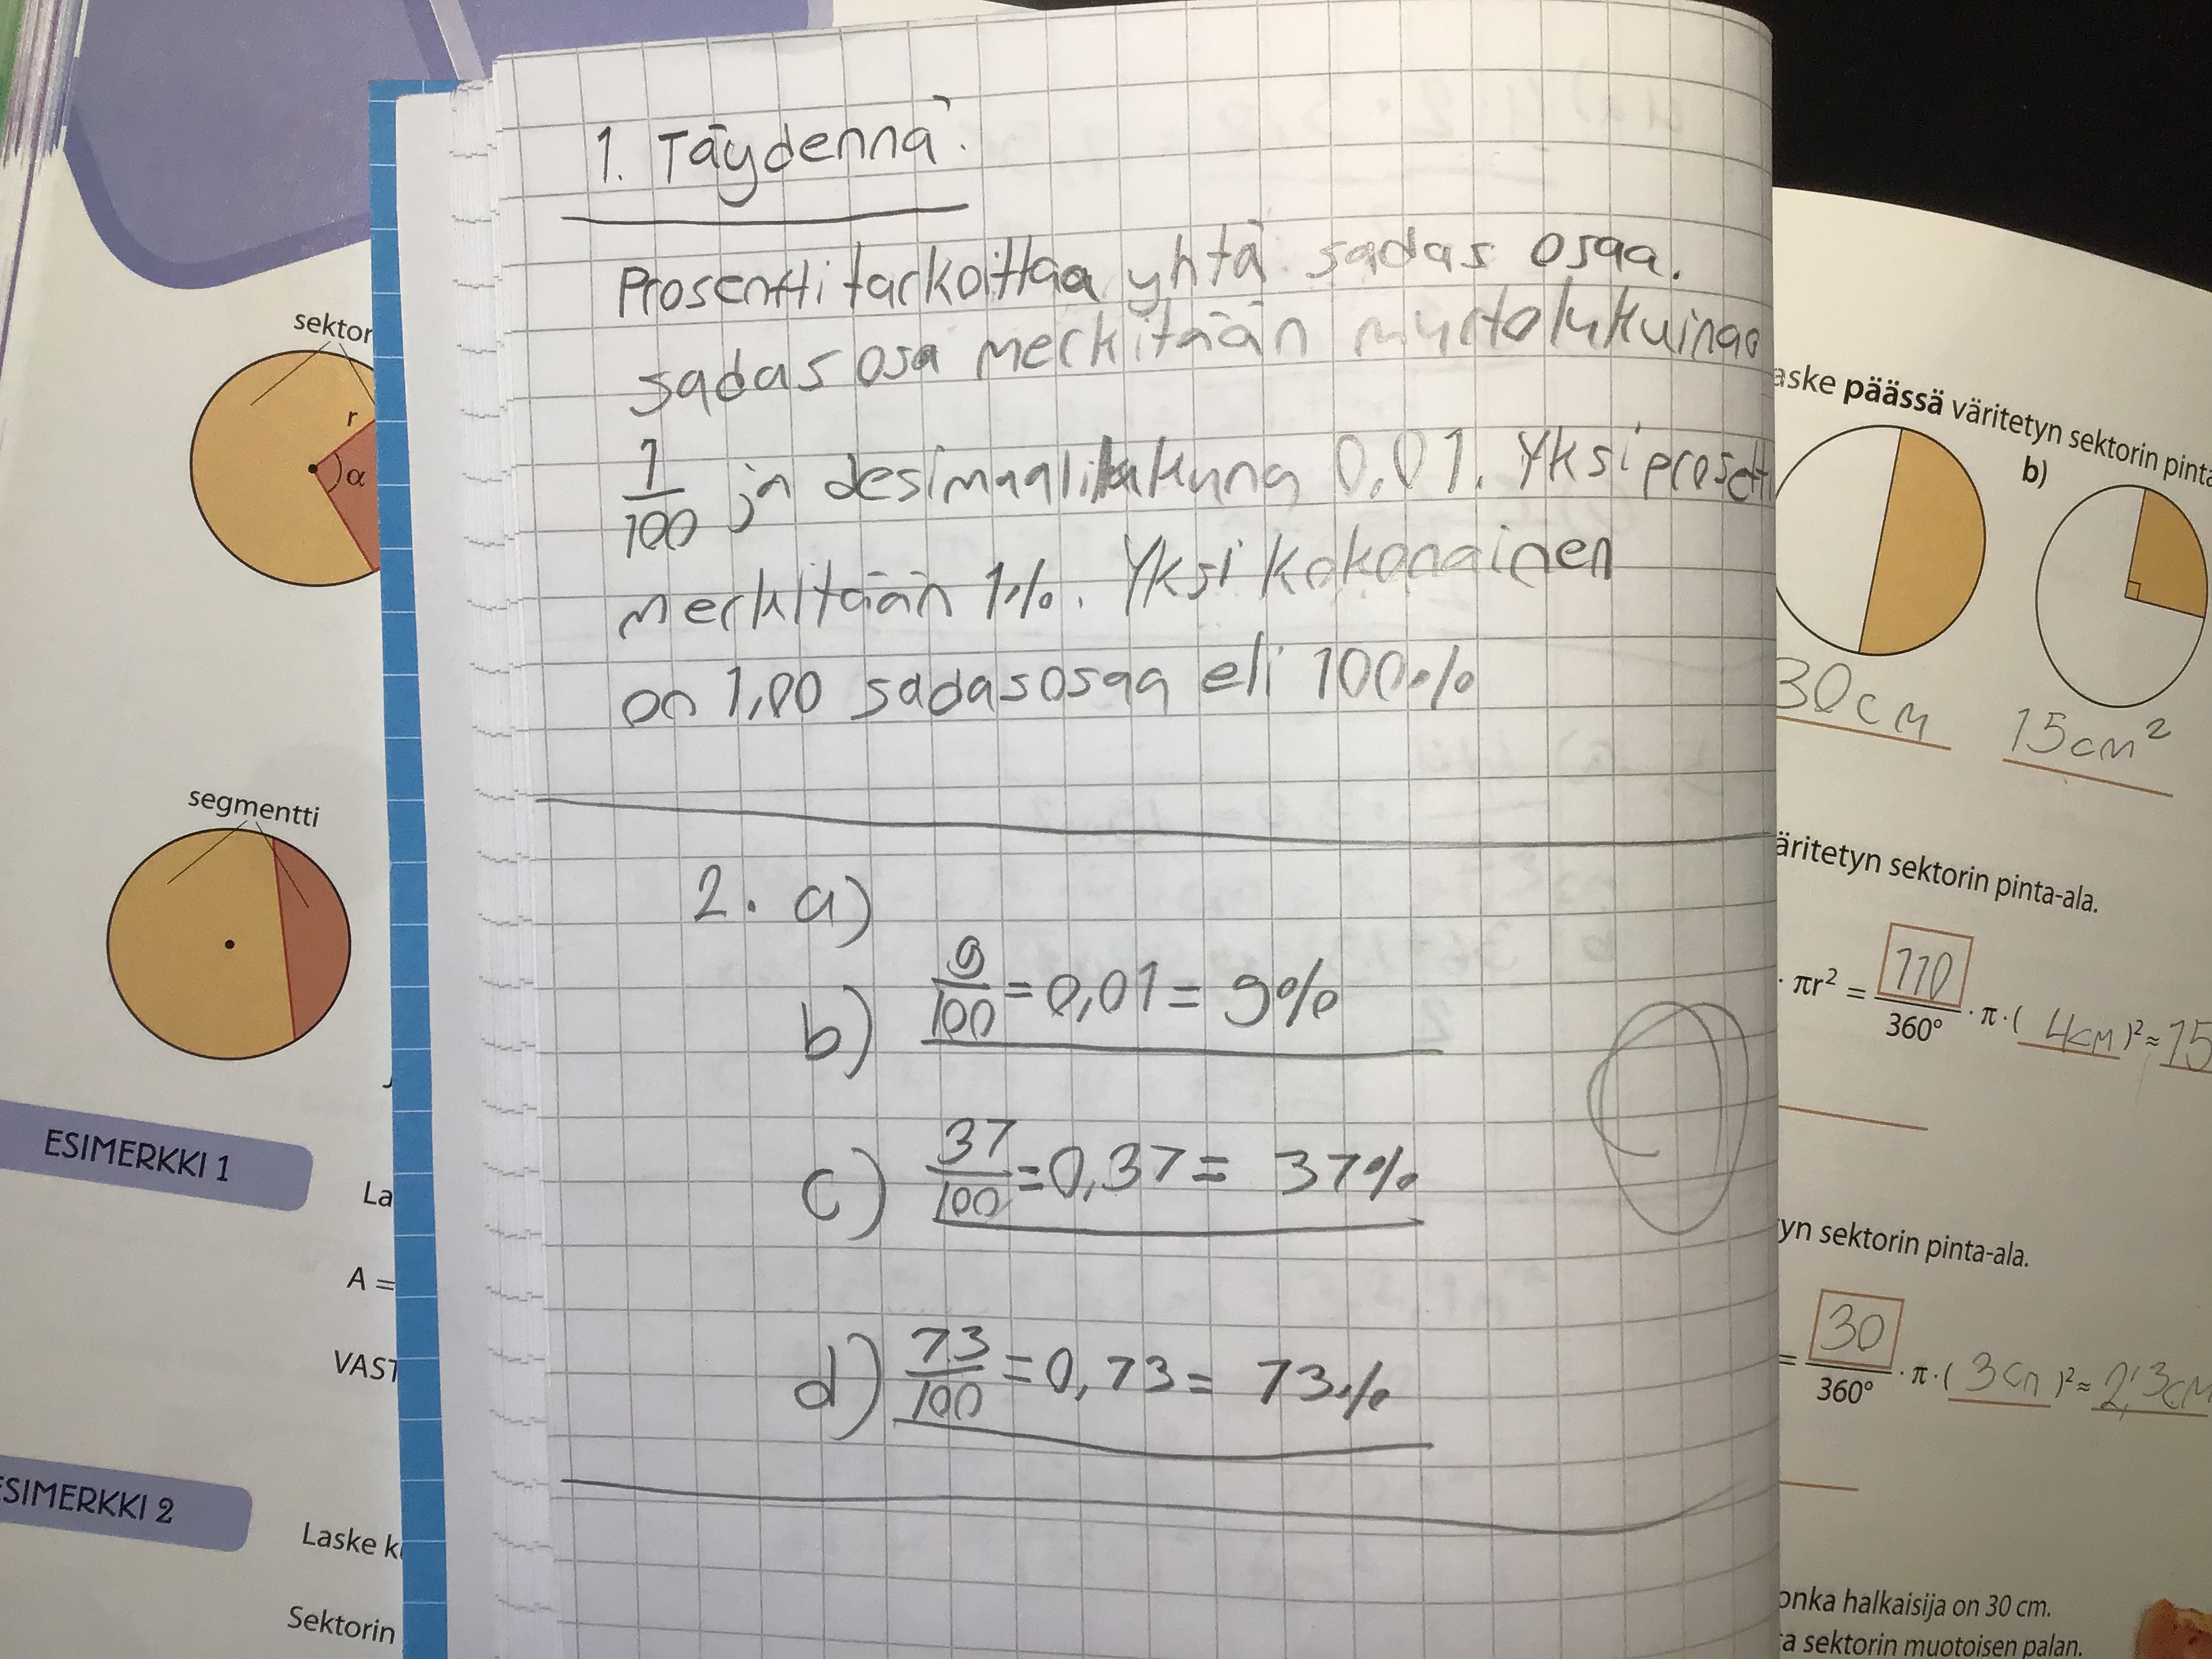 1. Täydennä.
Prosentti tarkoittaa yhtä sadas osaa.
sadas osa merkitään murtolukuinaa
1/100 ja desimaalilukuna 0,01. Yksi prosetti
merkitään 1%. Yksi kokonainen
on 1,00 sadasosaa eli 100%
2. a)
b) 9/100 = 0,01 = 9%
c) 37/100 = 0,37 = 37%
d) 73/100 = 0,73 = 73%
sektor
r
α
segmentti
ESIMERKKI 1
La
A =
VAST
ESIMERKKI 2
Laske k
Sektorin
aske päässä väritetyn sektorin pinta
b)
30cm
15cm²
äritetyn sektorin pinta-ala.
· πr² = 110/360° · π · ( 4cm )² ≈ 15
yn sektorin pinta-ala.
= 30/360° · π · ( 3cm )² ≈ 2,3cm
onka halkaisija on 30 cm.
a sektorin muotoisen palan.